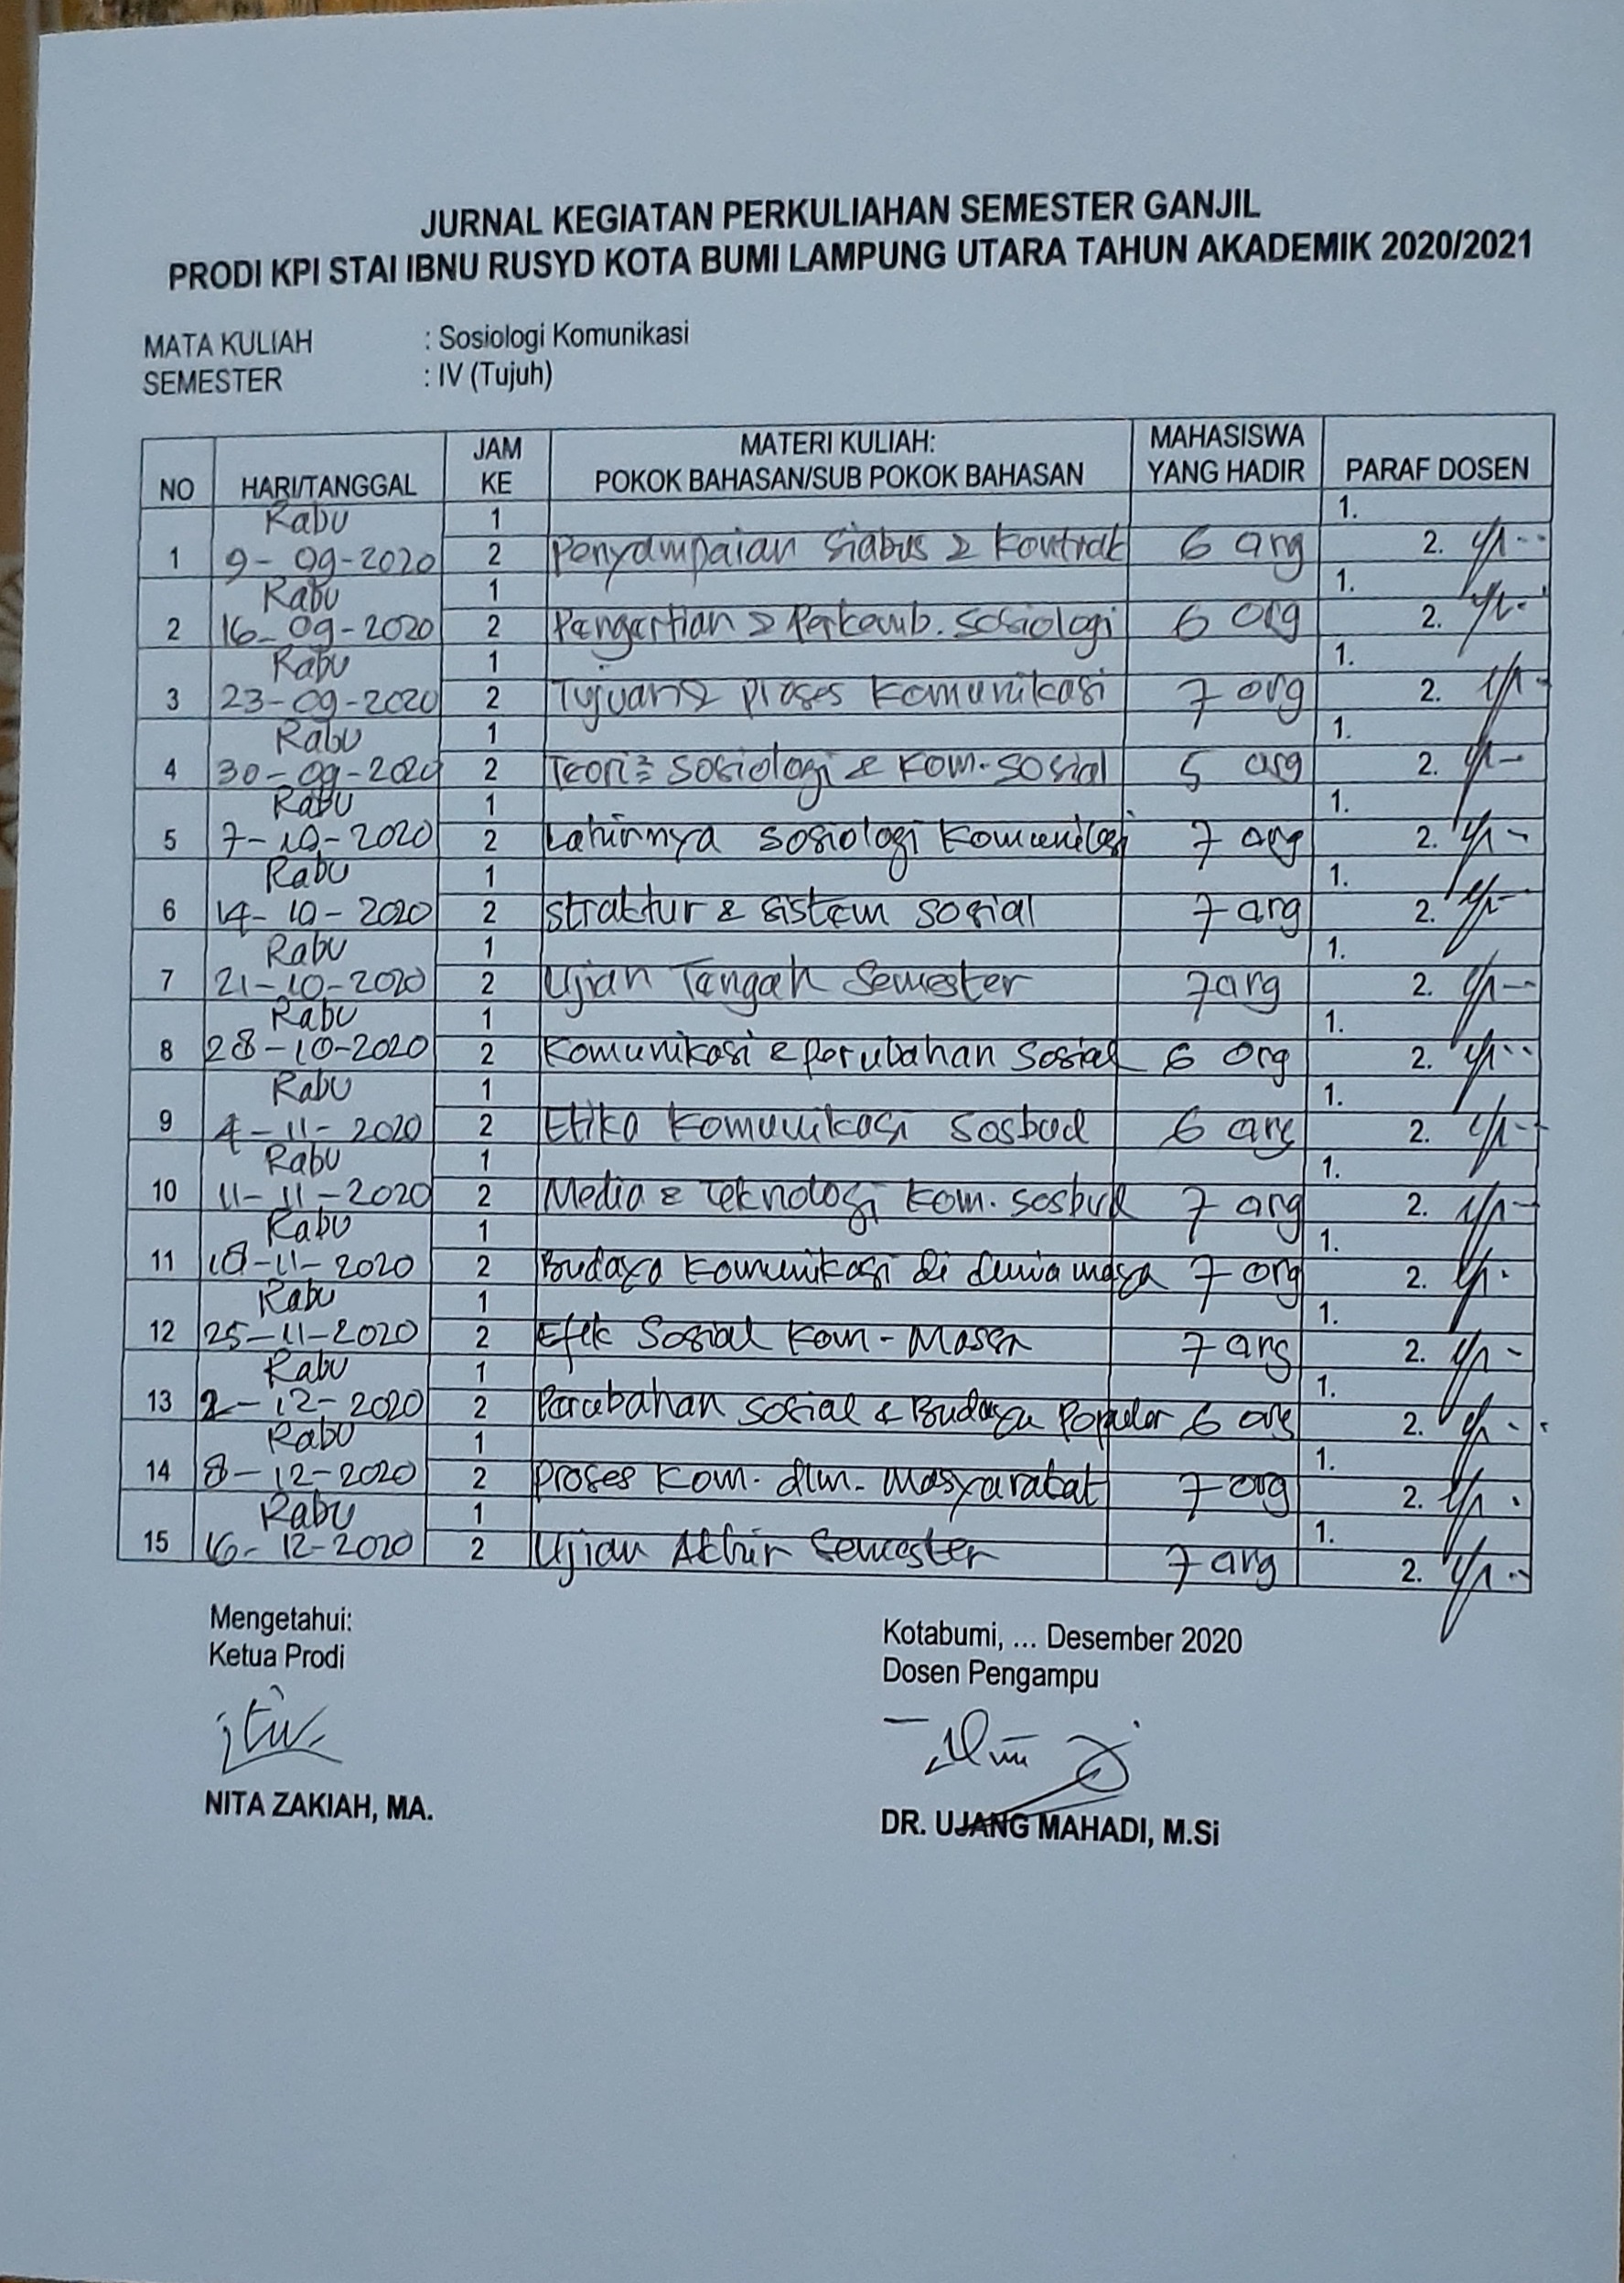 JURNAL KEGIATAN PERKULIAHAN SEMESTER GANJIL
PRODI KPI STAI IBNU RUSYD KOTA BUMI LAMPUNG UTARA TAHUN AKADEMIK 2020/2021
MATA KULIAH : Sosiologi Komunikasi
SEMESTER : IV (Tujuh)
NO HARI/TANGGAL JAM KE MATERI KULIAH: POKOK BAHASAN/SUB POKOK BAHASAN MAHASISWA YANG HADIR PARAF DOSEN
Rabu 1 1.
1 9-09-2020 2 Penyampaian Siabus & Kontrak 6 org 2.
Rabu 1 1.
2 16-09-2020 2 Pengertian & Perkemb. Sosiologi 6 org 2.
Rabu 1 1.
3 23-09-2020 2 Tujuan & Proses Komunikasi 7 org 2.
Rabu 1 1.
4 30-09-2020 2 Teori2 Sosiologi & Kom. Sosial 5 org 2.
Rabu 1 1.
5 7-10-2020 2 Lahirnya Sosiologi Komunikasi 7 org 2.
Rabu 1 1.
6 14-10-2020 2 Straktur & Sistem Sosial 7 org 2.
Rabu 1 1.
7 21-10-2020 2 Ujian Tengah Semester 7 org 2.
Rabu 1 1.
8 28-10-2020 2 Komunikasi & perubahan Sosial 6 org 2.
Rabu 1 1.
9 4-11-2020 2 Etika Komunikasi Sosbud 6 org 2.
Rabu 1 1.
10 11-11-2020 2 Media & Teknologi Kom. Sosbud 7 org 2.
Rabu 1 1.
11 18-11-2020 2 Budaya Komunikasi di dunia maya 7 org 2.
Rabu 1 1.
12 25-11-2020 2 Efek Sosial Kom-Massa 7 org 2.
Rabu 1 1.
13 2-12-2020 2 Perubahan Sosial & Budaya Populer 6 org 2.
Rabu 1 1.
14 8-12-2020 2 Proses Kom. dlm. Masyarakat 7 org 2.
Rabu 1 1.
15 16-12-2020 2 Ujian Akhir Semester 7 org 2.
Mengetahui:
Ketua Prodi
NITA ZAKIAH, MA.
Kotabumi, ... Desember 2020
Dosen Pengampu
DR. UJANG MAHADI, M.Si